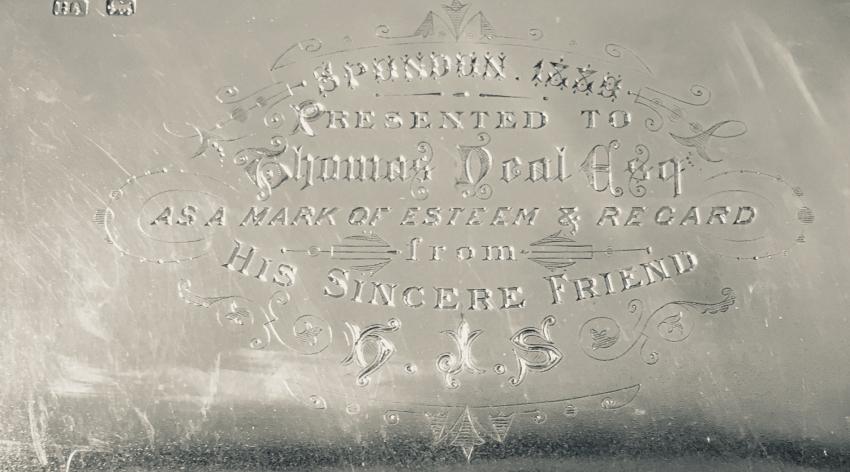 SPONDON.
PRESENTED TO
Thomas Neal Esqr
AS A MARK OF ESTEEM & REGARD
from
HIS SINCERE FRIEND
H. J. S